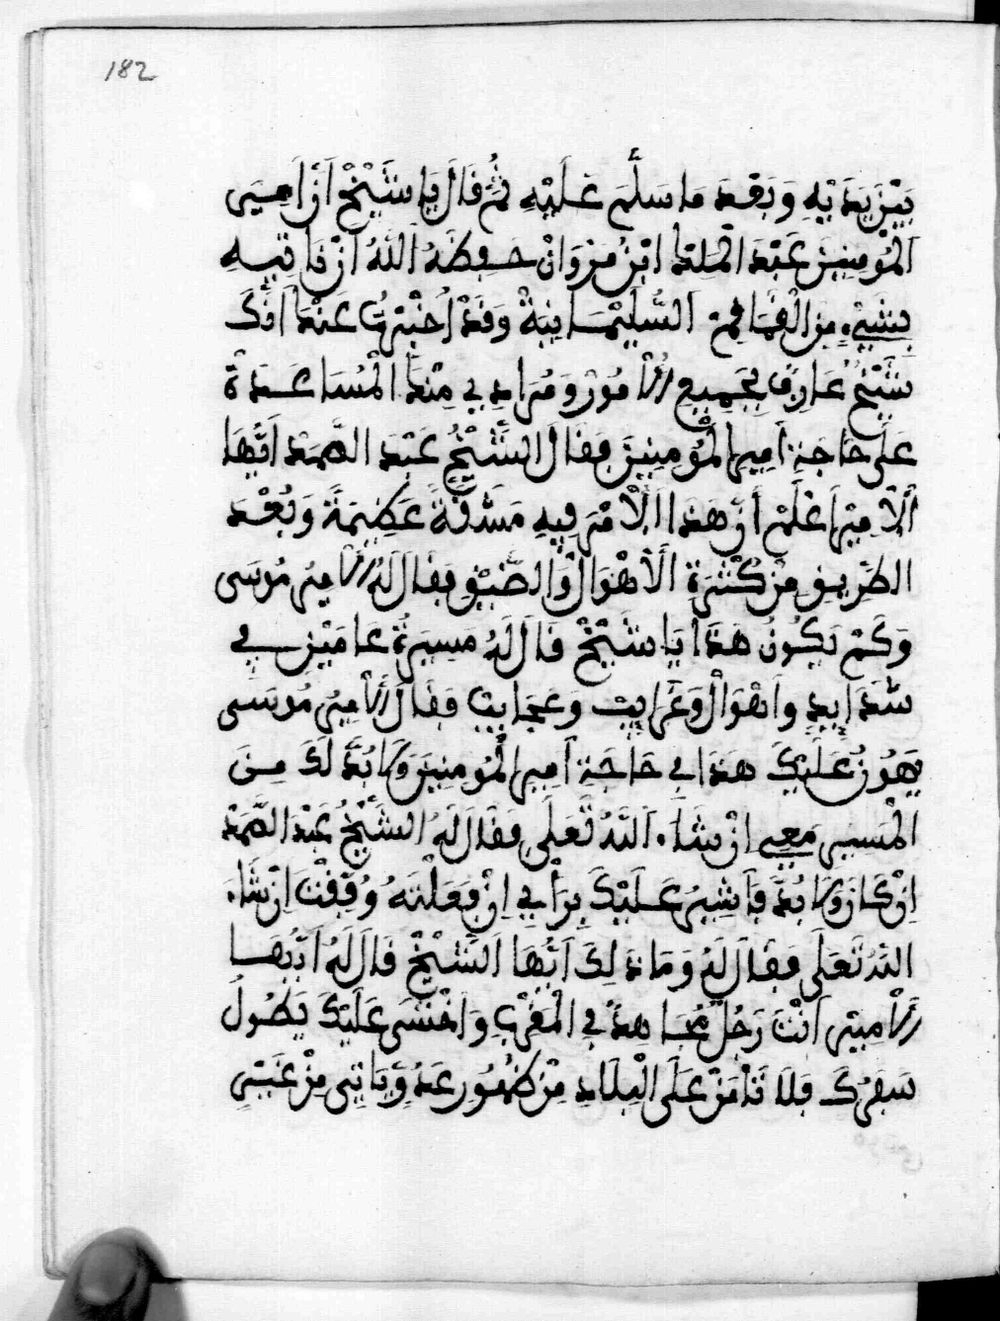 182
بَيْنَ يَدَيْهِ وَبَعْدَ مَا سَلَّمَ عَلَيْهِ ثُمَّ قَالَ يَا شَيْخُ اَنَّ اَمِيرَ
الْمُومِنِينَ عَبْدَ الْمَلِكِ ابْنُ مَرْوَانْ حَفِظَهُ اللَّهُ اَنْ نَاتِيهِ
بِشَيْءٍ مِنَ الْقَمَاقِمْ السُّلَيْمَانِيَةْ وَقَدْ اُخْبِرْتُ عَنْكَ اَنَّكَ
شَيْخٌ عَارِفٌ بِجَمِيعِ الْاُمُورْ وَمُرَادِي مِنْكَ الْمُسَاعَدَةْ
عَلَى حَاجَةِ اَمِيرِ الْمُومِنِينَ فَقَالَ الشَّيْخُ عَبْدَ الصَّمَدْ اَيُّهَا
الْاَمِيرْ اَعْلَمْ اَنَّ هَذَا الْاَمْرَ فِيهِ مَشَقَّةً عَظِيمَةً وَبُعْدَ
الطَّرِيقِ مِنْ كَثْرَةِ الْاَهْوَالْ وَالضَّيْقِ فَقَالَ لَهُ الْاَمِيرْ مُوسَى
وَكَمْ يَكُونُ هَذَا يَا شَيْخْ قَالَ لَهُ مَسِيرَةُ عَامَيْنِ فِي
شَدَايِدٍ وَاَهْوَالْ وَغَرَايِبْ وَعَجَايِبْ فَقَالَ الْاَمِيرْ مُوسَى
يَهُونُ عَلَيْكَ هَذَا فِي حَاجَةِ اَمِيرِ الْمُومِنِينَ وَلَا بُدَّ لَكَ مِنَ
الْمَسِيرِ مَعِي اِنْ شَاءَ اللَّهُ تَعَلَى فَقَالَ لَهُ الشَّيْخُ عَبْدَ الصَّمَدْ
اِنْ كَانَ وَلَا بُدَّ فَاَشِيرُ عَلَيْكَ بِرَأْيٍ اِنْ فَعَلْتَهُ وُفِّقْتَ اِنْ شَاءَ
اللَّهُ تَعَلَى فَقَالَ لَهُ وَمَا ذَلِكَ اَيُّهَا الشَّيْخْ قَالَ لَهُ اَيُّهَا
الْاَمِيرْ اَنْتَ رَجُلْ مُجَاهِدٌ فِي الْمَغْرِبْ وَاَخْشَى عَلَيْكَ يَطُولُ
سَفَرُكَ فَلَا تَامَنْ عَلَى الْبِلَادِ مِنْ ظُهُورِ عَدُوٍّ يَاتِي مِنْ غَيْرِ